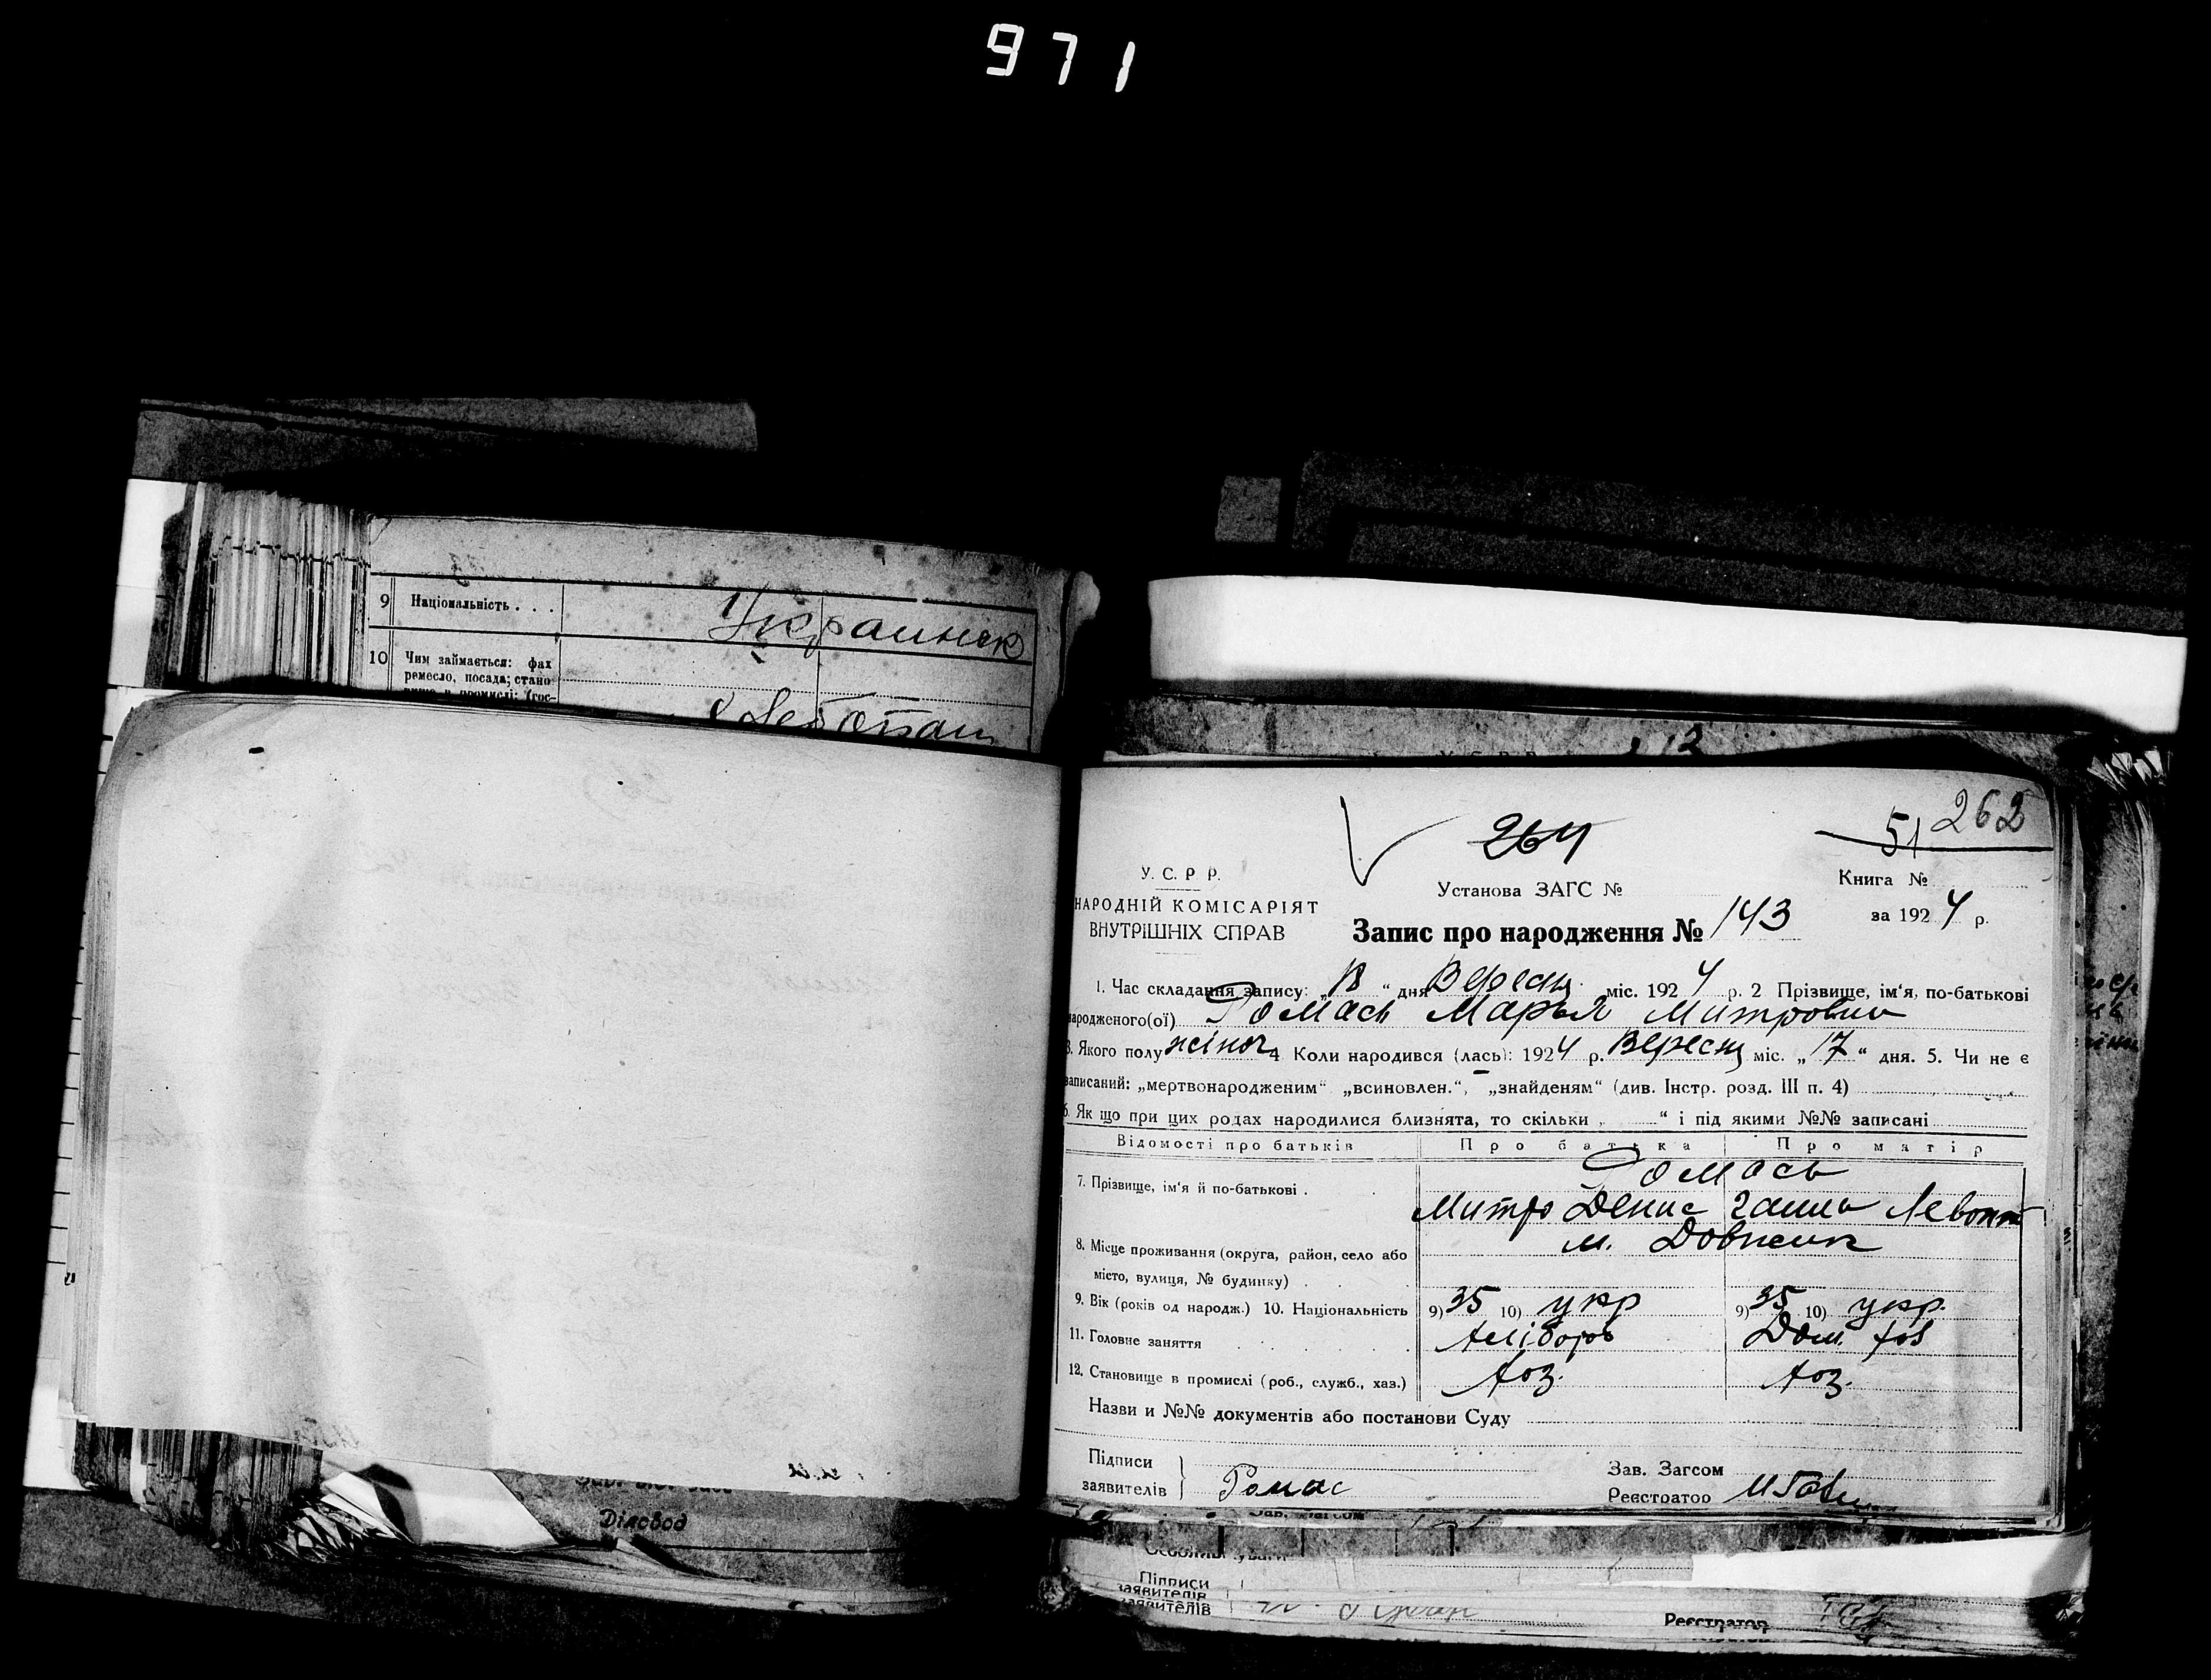 971
9 Національність . . .
Украинск
10 Чим займається: фах
ремесло, посада; стано-
Хлебопаш
Діловод
264
51 262
У. С. Р. Р.
НАРОДНІЙ КОМІСАРІЯТ
ВНУТРІШНІХ СПРАВ
Установа ЗАГС №
Книга №
за 1924 р.
Запис про народження № 143
1. Час складання запису: „18“ дня Вересня міс. 1924 р. 2 Прізвище, ім‘я, по-батькові
народженого(ої) Ромась Марья Митровна
3. Якого полу жіноч 4 Коли народився (лась): 1924 р. Вересня міс. „17“ дня. 5. Чи не є
записаний: „мертвонародженим“ „всиновлен.“, „знайденям“ (див. Інстр. розд. III п. 4)
6. Як що при цих родах народилися близнята, то скільки „ “ і під якими №№ записані
Відомості про батьків Про батька Про матір
Ромась
7. Прізвище, ім‘я й по-батькові .
Митро Денис Ганна Левонт
м. Довженк
8. Місце проживання (округа, район, село або
місто, вулиця, № будинку) . .
9. Вік (років од народж.) 10. Національність 9) 35 10) укр 9) 35 10) укр.
11. Головне заняття Хлібороб Дом. хоз
12. Становище в промислі (роб., служб., хаз.) Хоз. Хоз.
Назви и №№ документів або постанови Суду
Підписи
заявителів
Ромас
Зав. Загсом
Реєстратор
Підписи
заявителів
заявителів
Реєстратор